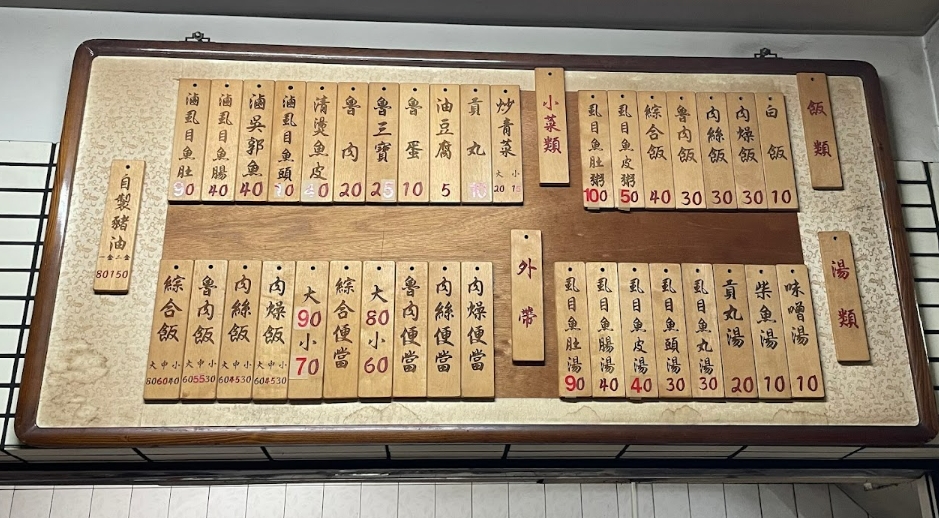 飯類
白飯 10
肉燥飯 30
肉絲飯 30
魯肉飯 30
綜合飯 40
虱目魚皮粥 50
虱目魚肚粥 100
小菜類
炒青菜 大 小 20 15
貢丸 10
油豆腐 5
魯蛋 10
魯三寶 25
魯肉 20
清燙魚皮
滷虱目魚頭
滷吳郭魚 40
滷虱目魚腸 40
滷虱目魚肚 90
湯類
味噌湯 10
柴魚湯 10
貢丸湯 20
虱目魚丸湯 30
虱目魚頭湯 30
虱目魚皮湯 40
虱目魚腸湯 40
虱目魚肚湯 90
外帶
肉燥便當
肉絲便當
魯肉便當
大 80 小 60
綜合便當
大 90 小 70
肉燥飯 大中小 60 45 30
肉絲飯 大中小 60 45 30
魯肉飯 大中小 60 55 30
綜合飯 大中小 80 60 40
自製豬油 80 150